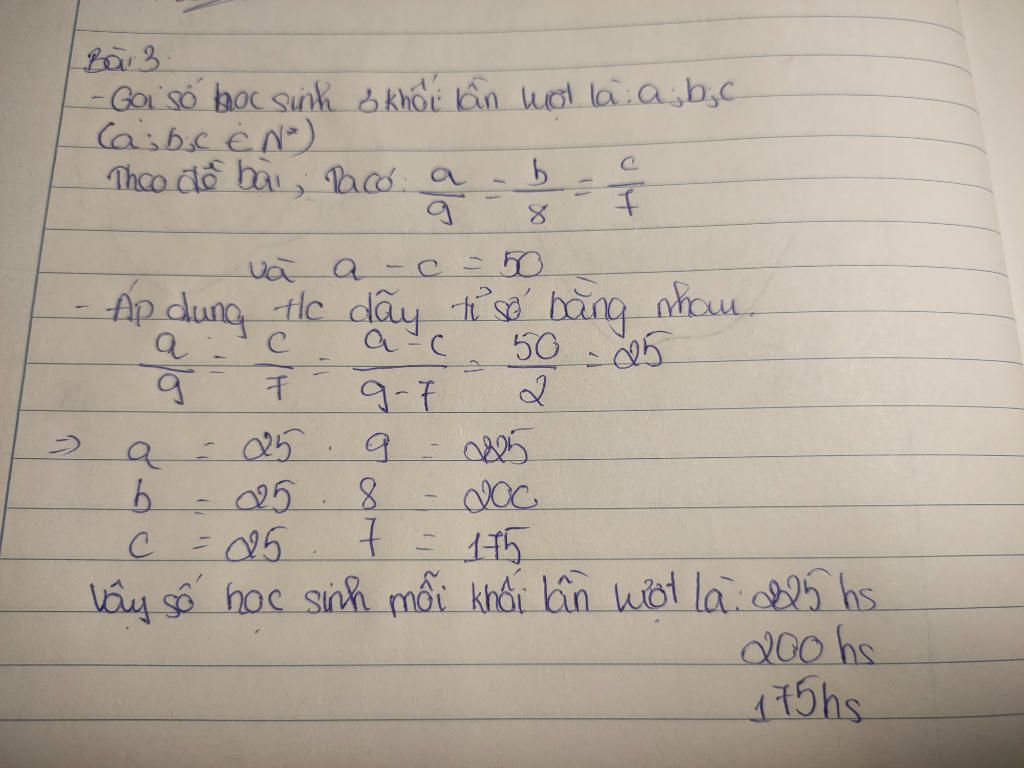 Bài 3:
- Gọi số học sinh 3 khối lần lượt là: a; b; c
(a; b; c ∈ N*)
Theo đề bài; Ta có: a/9 = b/8 = c/7
và a - c = 50
- Áp dụng t/c dãy tỉ số bằng nhau.
a/9 = c/7 = a-c/9-7 = 50/2 = 25
=> a = 25 . 9 = 225
b = 25 . 8 = 200
c = 25 . 7 = 175
Vậy số học sinh mỗi khối lần lượt là: 225 hs
200 hs
175 hs